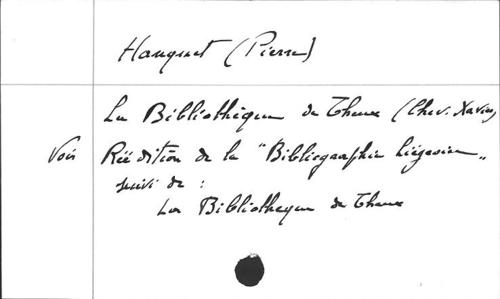 Hanquet (Pierre)
La Bibliothèque de Theux (Chev. Xavier)
Voir Réédition de la "Bibliographie Liégeoise"
suivi de :
La Bibliotheque de Theux